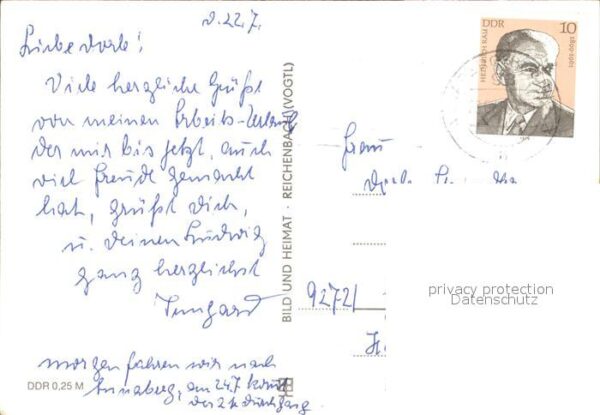 d. 22.7.
Liebe Dorle!
Viele herzliche Grüße
von meinem Arbeits-Urlaub
der mir bis jetzt, auch
viel Freude gemacht
hat, grüßt Dich,
u. Deinen Ludwig
ganz herzlichst
Irmgard
morgen fahren wir nach
Annaberg, am 24.7. kommt
der 2te Durchgang
DDR 0,25 M
BILD UND HEIMAT · REICHENBACH (VOGTL)
DDR 10
HEINRICH RAU
1899-1961
Frau
9272/
privacy protection
Datenschutz